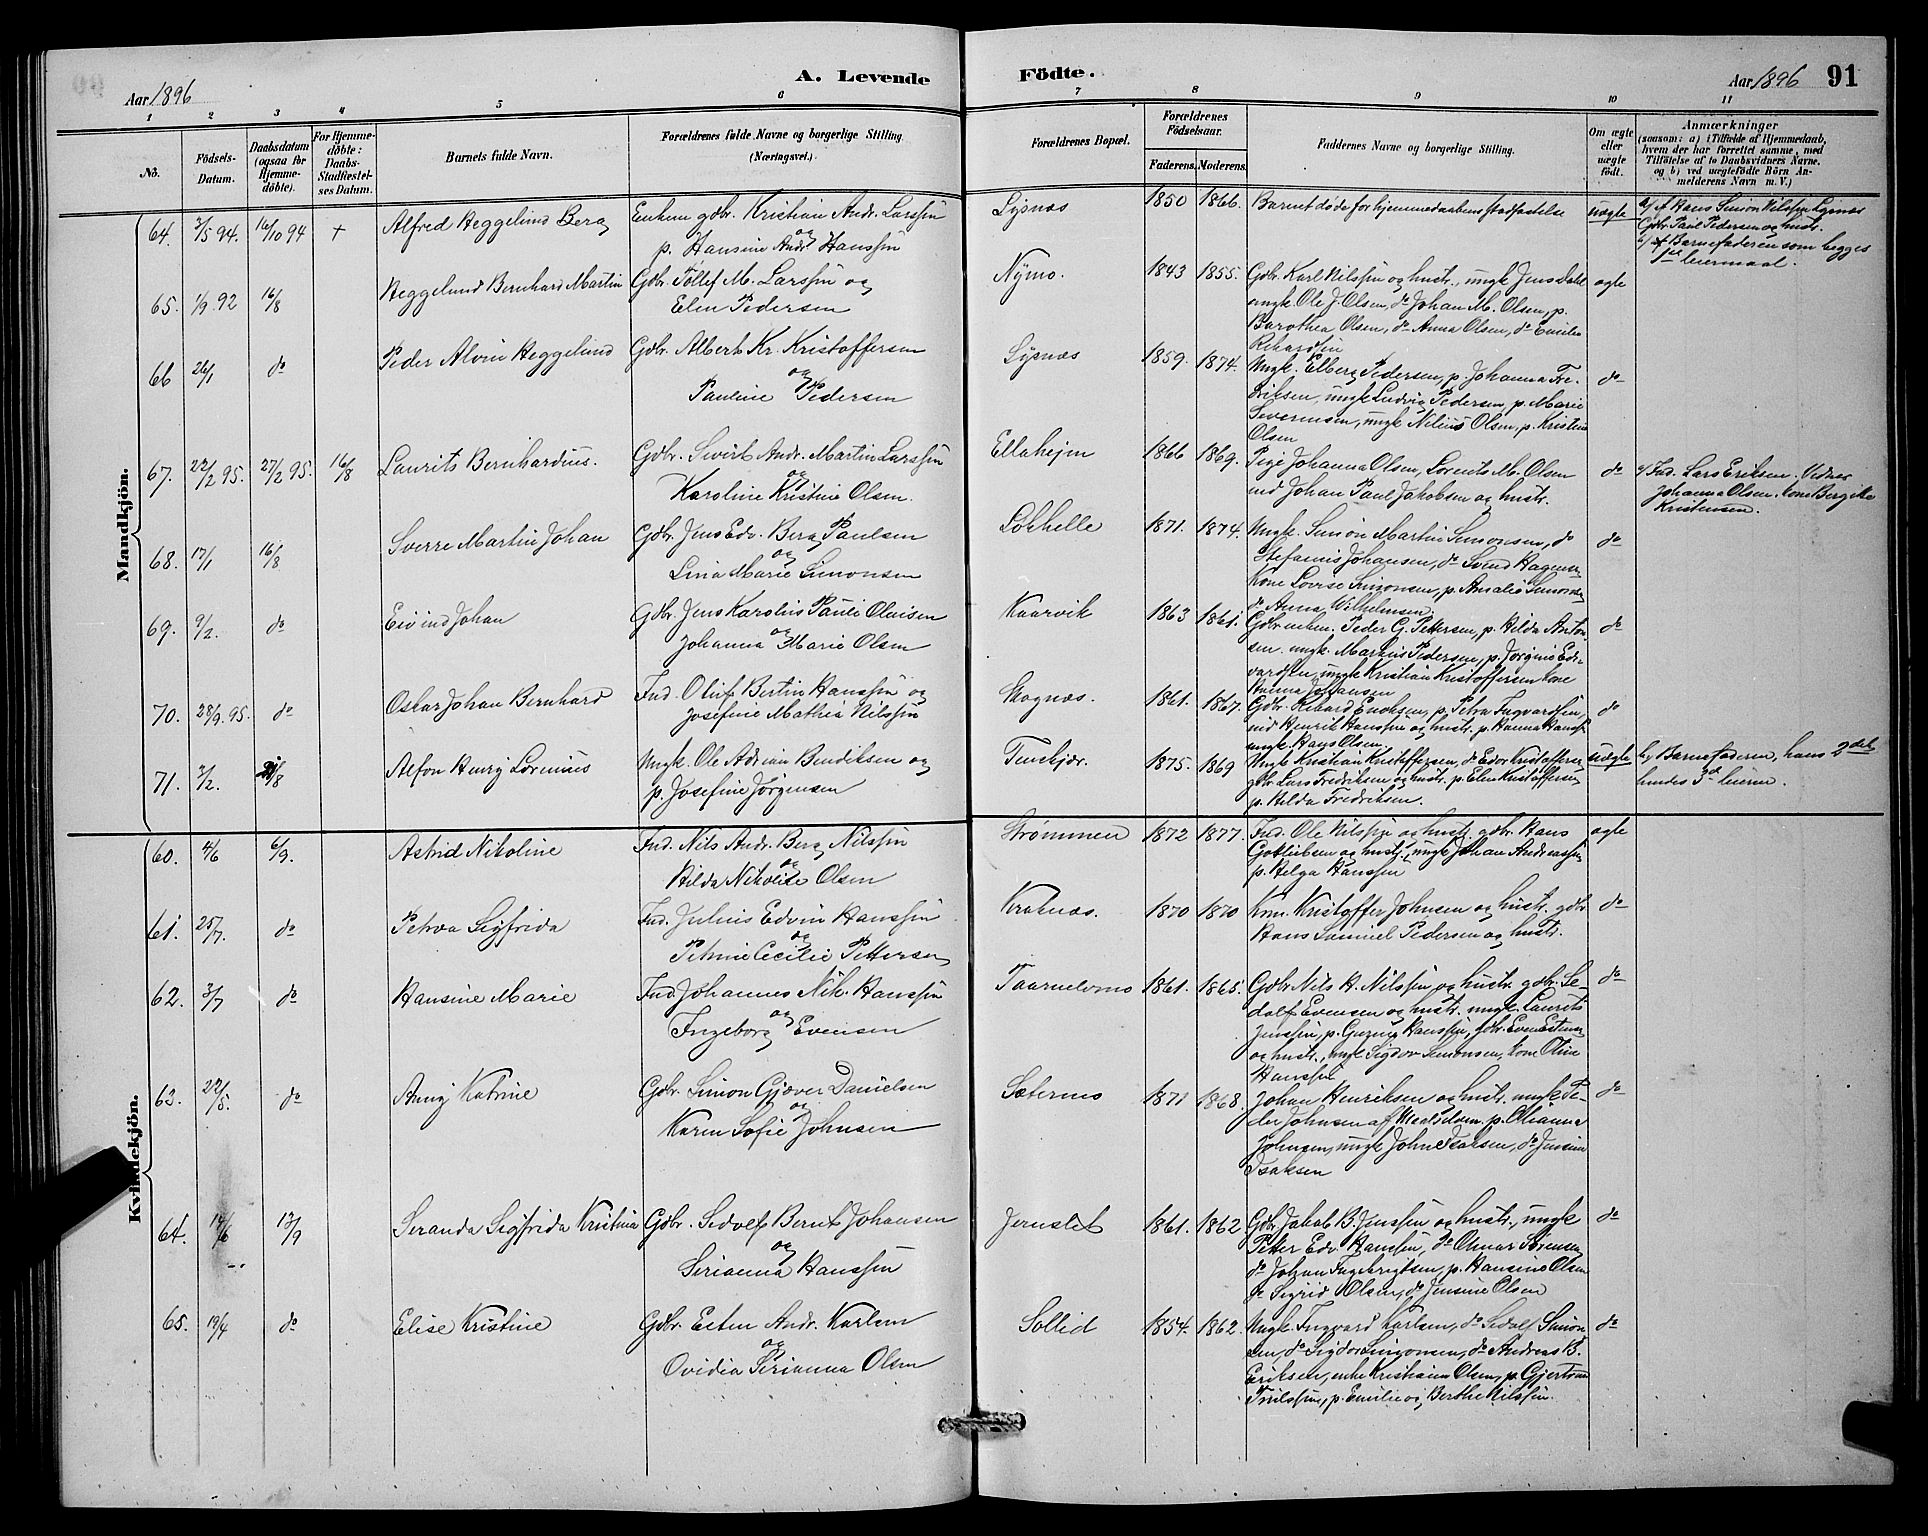 Aar 1896
A. Levende
Födte.
Aar 1896
91
1 2 3 4 5 6 7 8 9 10 11
No.
Födsels-
Datum.
Daabsdatum
(ogsaa for
Hjemme-
döbte).
For Hjemme-
döbte:
Daabs-
Stadfæstel-
ses Datum.
Barnets fulde Navn.
Forældrenes fulde Navne og borgerlige Stilling.
(Næringsvei.)
Forældrenes Bopæl.
Forældrenes
Födselsaar.
Faderens. Moderens.
Faddernes Navne og borgerlige Stilling.
Om ægte
eller
uægte
födt.
Anmærkninger
(saasom: a) i Tilfælde af Hjemmedaab,
hvem der har forrettet samme, med
Tilföielse af to Daabsvidners Navne.
og b) ved uægtefödte Börn An-
melderens Navn m. V.)
Mandkjön.
64. 3/5 94. 16/10 94 + Alfred Heggelund Berg
Enkem. gdbr. Kristian Andr. Larssen
og
p. Hansine Andr. Hanssen
Lysnæs 1850 1866. Barnet døde før hjemmedaabens stadfæstelse uægte
a/ af Hans Simon Nilssen Lysnæs
Gdbr. Paul Pedersen og hustr.
b/ af Barnefaderen som begges
1ste leiermaal.
65. 1/9 92 16/8 Heggelund Bernhard Martin
Gdbr. Tollef M. Larssen og
Elen Pedersen
Nymo. 1843 1855. Gdbr. Karl Nilssen og hustr., ungk. Jens Dahl ægte
ungk. Ole J. Olsen, do Johan M. Olsen, p.
Barothea Olsen, do Anna Olsen, do Emilie
Rikardsen
66 26/1 do Peder Alvin Heggelund
Gdbr. Albert Kr. Kristoffersen
og
Pauline Pedersen
Lysnæs 1859. 1874. Ungk. Elberg Pedersen, p. Johanna Fre- do
driksen, ungk. Ludvig Pedersen, p. Marie
Severinsen, ungk. Nilius Olsen, p. Kristine
Olsen
67. 22/2 95. 27/2 95. 16/8 Laurits Bernhardius.
Gdbr. Sivert Andr. Martin Larssen
og
Karoline Kristine Olsen.
Ellahejm 1866 1869. Pige Johanna Olsen, Lorents M. Olsen do
ind. Johan Paul Jakobsen og hustr.
a/ Ind. Lars Eriksen. Vidner
Johanna Olsen. kone Bergitte
Kristensen.
68. 17/1 16/8 Sverre Martin Johan
Gdbr. Jens Edv. Berg Paulsen
og
Lina Marie Simonsen
1871. 1874. Ungk. Simon Martin Simonsen, do do
Stefanus Johansen, do Svend Hagensen
Kone Lovise Simonsen, p. Amalie Simonsen
do Anna Wilhelmsen
69. 9/2. do Eivind Johan
Gdbr. Jens Karolius Pauli Olaisen
og
Johanna Marie Olsen
Kaarvik 1863 1861. Gdbr. enkem. Peder G. Pettersen, p. Hilda Anton- do
sen. ungk. Markus Pedersen, p. Jørgine Ed-
vardsen, ungk. Kristian Kristoffersen kone
Hanna Johansen
70. 28/9. 95. do Oskar Johan Bernhard
Ind. Oluf Bertin Hanssen og
Josefine Mathea Nilssen
Skognæs. 1861. 1867. Gdbr. Rikard Enoksen, p. Petra Ingvardsen, do
ind. Henrik Hanssen og hustr. p. Hanna Hanss.
ungk. Hans Olsen
71. 3/2. /8 Alfon Henry Lorenius
Ungk. Ole Adrian Bendiksen og
p. Josefine Jørgensen
Tenskjær. 1875. 1869 Ungk. Kristian Kristoffersen, do Edor Kristoffersen uægte
gdbr. Lars Fredriksen og hustr. p. Elen Kristoffersen
p. Hilda Fredriksen.
b/ Barnefaderen, hans 2det
hendes 3die leierm.
Kvindekjön.
60. 4/6 6/9. Astrid Nikoline
Ind. Nils Andr. Berg Nilssen
og
Hilda Nikolise Olsen
Strømmen 1872 1877. Ind. Ole Nilssen og hustr. gdbr. Hans ægte
Gotliebsen og hustr., ungk. Johan Andreassen,
p. Helga Hanssen
61. 25/7. do Petra Sigfrida
Ind. Julius Edvin Hanssen
og
Petrine Cecilie Pettersen
Kraknæs. 1870 1870 Kem. Kristoffer Johnsen og hustr. gdbr. do
Hans Samuel Pedersen og hustr.
62. 3/7 do Hansine Marie
Ind. Johannes Nik. Hanssen
og
Ingeborg Evensen
Taarnelvmo 1861. 1865. Gdbr. Nils H. Nilssen og hustr. gdbr. Se- do
dolf Evensen og hustr. ungk. Laurits
Jenssen, p. Hanssen, gdbr. Even Estensen
og hustr., ungk. Sigdor Simonsen, kone Oline
Hanssen
63. 22/5. do Anny Katrine
Gdbr. Simon Gjæver Danielsen
og
Karen Sofie Johnsen
Sætermo 1871 1868. Johan Henriksen og hustr. ungk. Pe- do
der Johnsen af p. Olianna
Johnsen, ungk. John Isaksen, do Jensine
Isaksen
64. 14/6 13/9 Seranda Sigfrida Kristina
Gdbr. Sedolf Bernt Johansen
og
Serianna Hanssen
Jernslet 1861. 1862 Gdbr. Jakob B. Jenssen og hustr., ungk. do
Petter Edv. Hanssen, do Osmar Sørensen,
do Johan Ingebrigtsen, p. Hansine Olsen
do Sigrid Olsen, do Jensine Olsen
65. 19/4 do Elise Kristine
Gdbr. Esten Andr. Karlsen
og
Ovidia Serianna Olsen
Sollid 1854. 1862. Ungk. Ingvard Karlsen, do Sedolf Simon- do
sen, do Sigdor Simonsen, do Andreas B.
Eriksen, enke Kristianna Olsen, p. Gjertrud
Nilssen, p. Emilie og Berthe Nilssen.